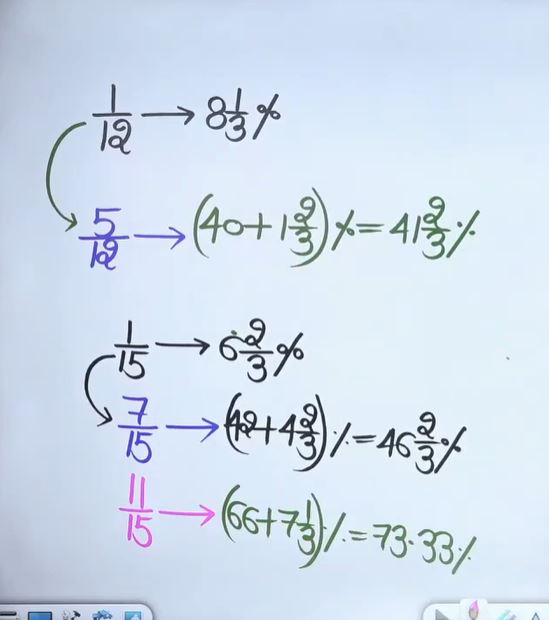 1/12 → 8 1/3 %
5/12 → (40 + 1 2/3) % = 41 2/3 %
1/15 → 6 2/3 %
7/15 → (42 + 4 2/3) % = 46 2/3 %
11/15 → (66 + 7 1/3) % = 73.33 %